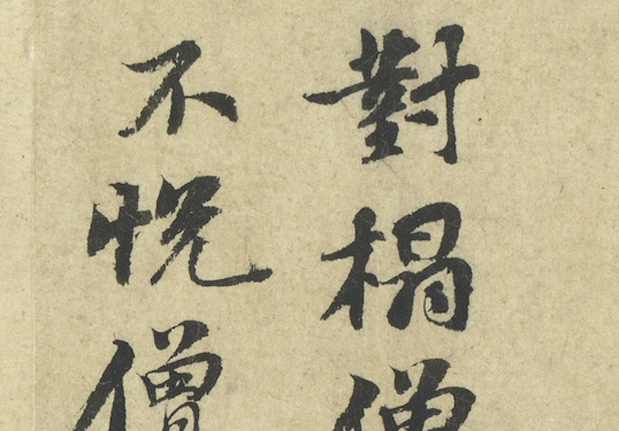 對榻僧
不悅僧